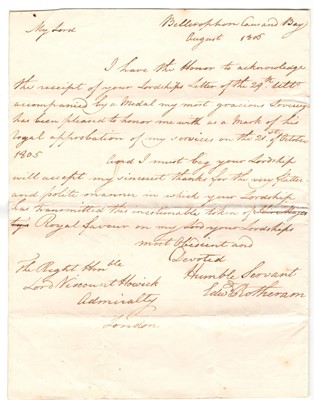 Bellerophon Cawsand Bay
My Lord
August 1806
I have the Honor to acknowledge
the receipt of your Lordships Letter of the 29th Ulto
accompanied by a Medal my most gracious Sovereign
has been pleased to honor me with as a Mark of his
royal approbation of my services on the 21st of October
1805
And I must beg your Lordship
will accept my sincerest thanks for the very flatter
and polite manner in which your Lordship
has transmitted this inestimable token of
Royal Favour on my Lord your Lordships
most Obedient and
Devoted
Humble Servant
Edwd Rotheram
The Right Honble
Lord Viscount Howick
Admiralty
London